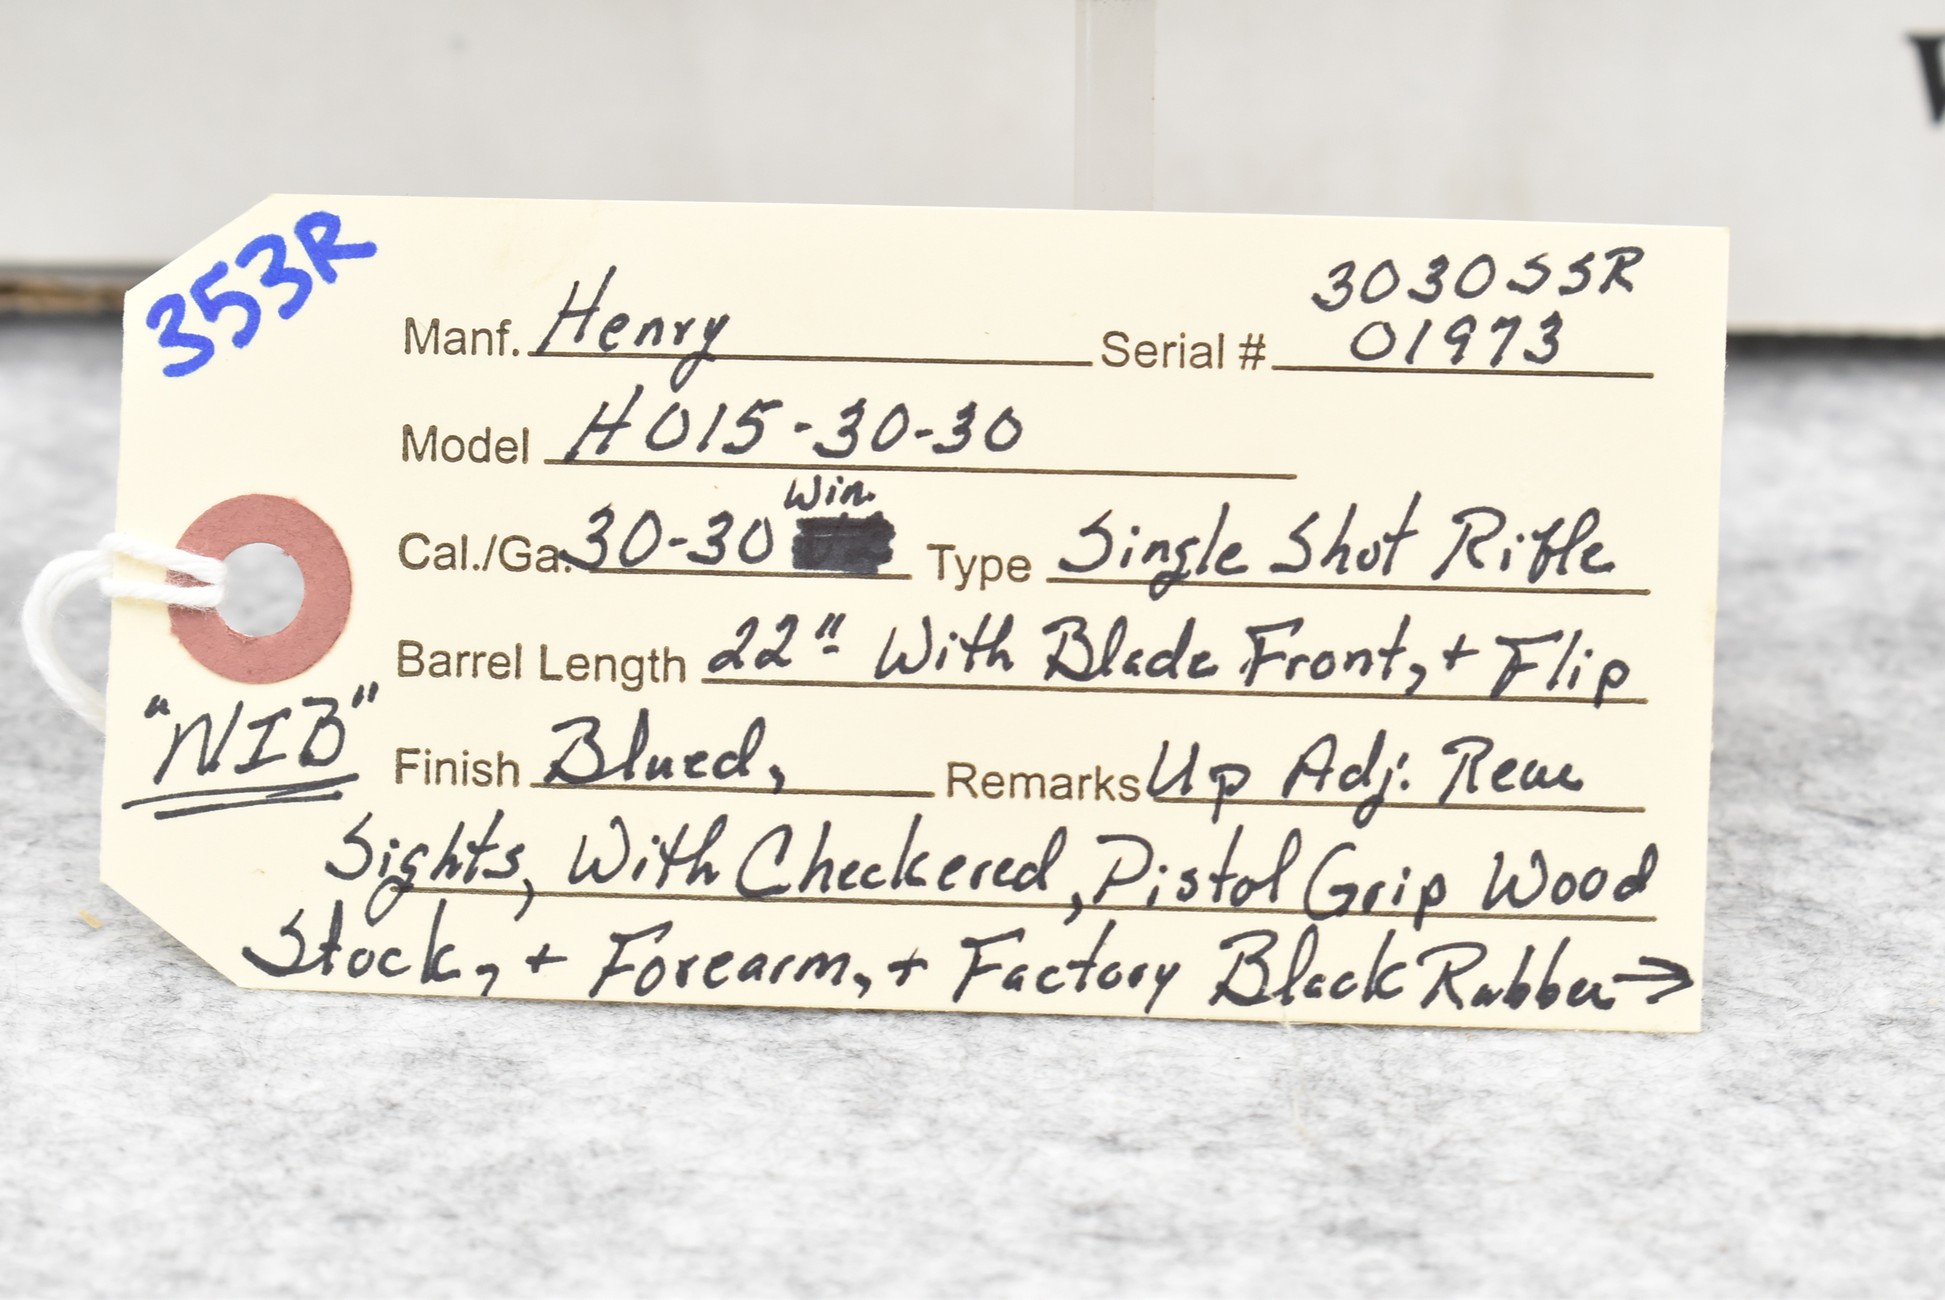 W
353R
3030SSR
Manf. Henry Serial # 01973
Model H015-30-30
Win.
Cal./Ga. 30-30 Type Single Shot Rifle
Barrel Length 22" With Blade Front, + Flip
"NIB"
Finish Blued, Remarks Up Adj. Rear
Sights, With Checkered, Pistol Grip Wood
Stock, + Forearm, + Factory Black Rubber →